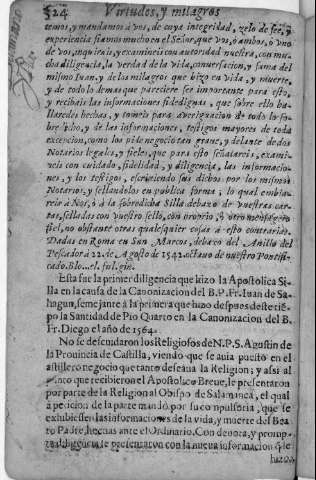 524 Virtudes, y milagros
temos, y mandamos à vos, de cuya integridad, zelo de fee, y
experiencia fiamos mucho en el Señor, que vos, ò ambos, ò vno
de vos, inquirais, y examineis con autoridad nuestra, con mu-
cha diligencia, la verdad de la vida, conuersacion, y fama del
mismo Iuan, y de los milagros que hizo en vida, y muerte,
y de todo lo demas que pareciere ser importante para esto,
y recibais las informaciones fidedignas, que sobre ello ha-
llaredes hechas, y tomeis para aueriguacion de todo lo so-
bredicho, y de las informaciones, testigos mayores de toda
excepcion, como los pide negocio tan graue, y delante de dos
Notarios legales, y fieles, que para esto señalareis, exami-
neis con cuidado, fidelidad, y diligencia, las informacio-
nes, y los testigos, escriuiendo sus dichos por los mismos
Notarios, y sellandolos en publica forma; lo qual embia-
reis à Nos, ò à la sobredicha Silla debaxo de vuestras car-
tas, selladas con vuestro sello, con proprio, ò otro mensagero
fiel, no obstante otras qualesquier cosas à esto contrarias.
Dadas en Roma en San Marcos, debaxo del Anillo del
Pescador à 22. de Agosto de 1542. octauo de nuestro Pontifi-
cado. Blo. el. fulgin.
Esta fue la primer diligencia que hizo la Apostolica Si-
lla en la causa de la Canonizacion del B. P. Fr. Iuan de Sa-
hagun, semejante à la primera que hizo despues deste tiē-
po la Santidad de Pio Quarto en la Canonizacion del B.
Fr. Diego el año de 1564.
No se descuidaron los Religiosos de N. P. S. Agustin de
la Prouincia de Castilla, viendo que se auia puesto en el
astillero negocio que tanto deseaua la Religion; y assi al
punto que recibieron el Apostolico Breue, le presentaron
por parte de la Religion al Obispo de Salamanca, el qual
à peticion de la parte mandò por su compulsoria, que se
exhibiessen las informaciones de la vida, y muerte del Bea-
to Padre, hechas ante el Ordinario. Con deuota, y promp-
ta diligencia se presentaron con la nueua informacion q̄ se
hizo